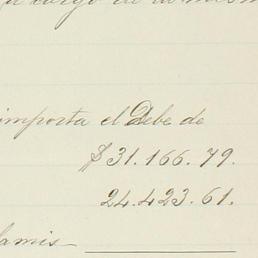 a cargo de la mism
importa el Debe de
$31.166.79.
24.423.61.
lamis